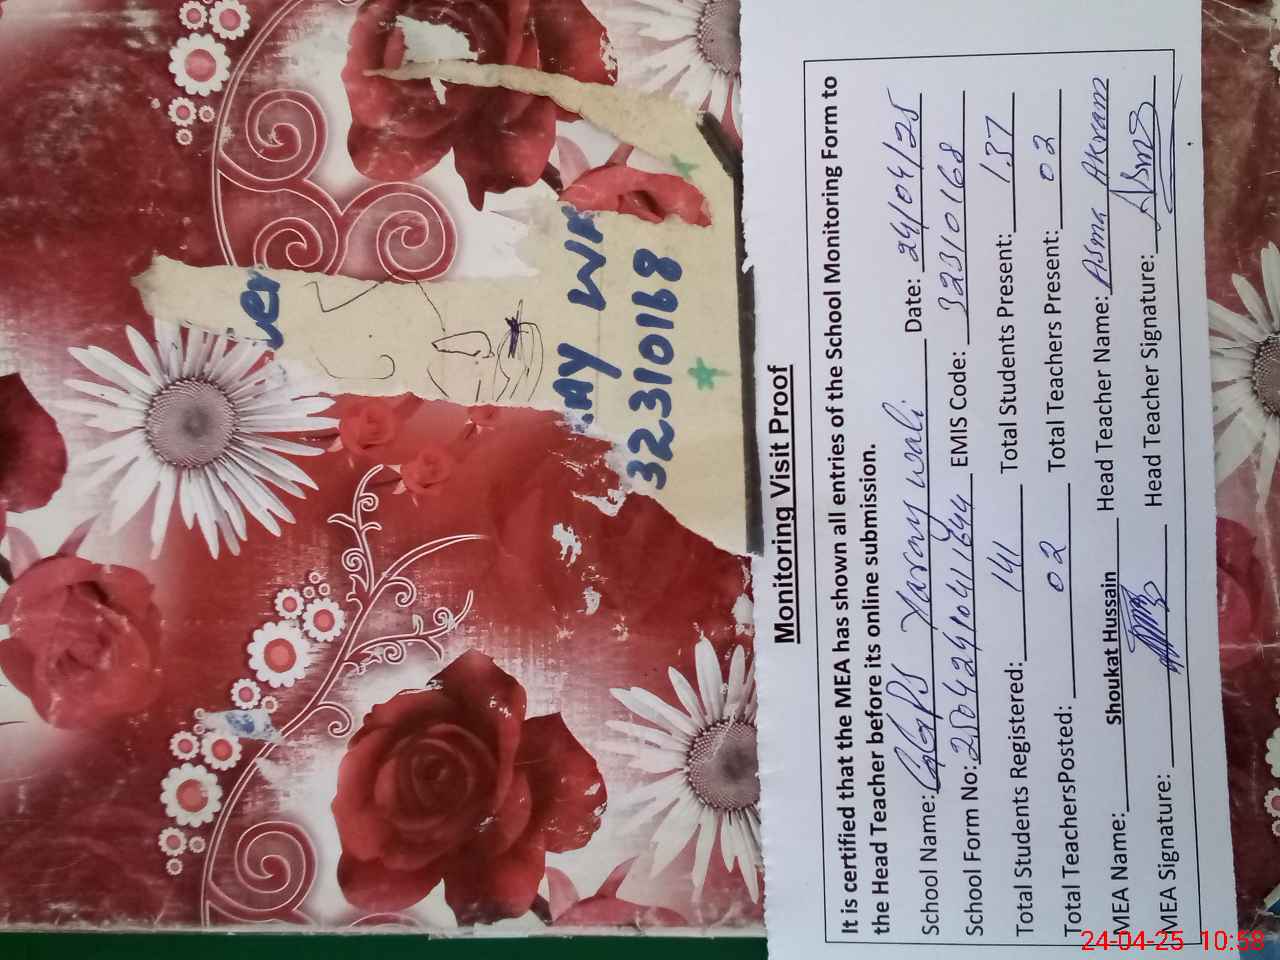 Monitoring Visit Proof
It is certified that the MEA has shown all entries of the School Monitoring Form to
the Head Teacher before its online submission.
School Name: GGPS wali Date: 24/04/25
School Form No: EMIS Code: 32310168
Total Students Registered: 141 Total Students Present: 137
Total TeachersPosted: 02 Total Teachers Present: 02
MEA Name: Shoukat Hussain Head Teacher Name: Asma Akram
MEA Signature: Head Teacher Signature: Asma
32310168
24-04-25 10:58